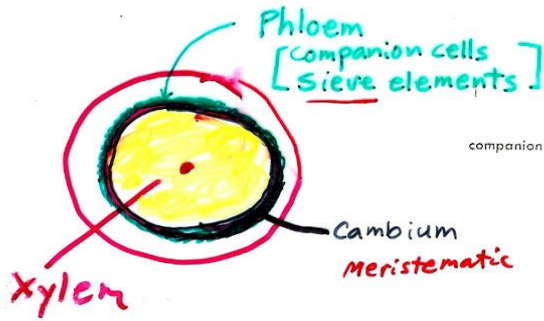 Phloem
[companion cells
sieve elements]
companion
Cambium
Meristematic
Xylem